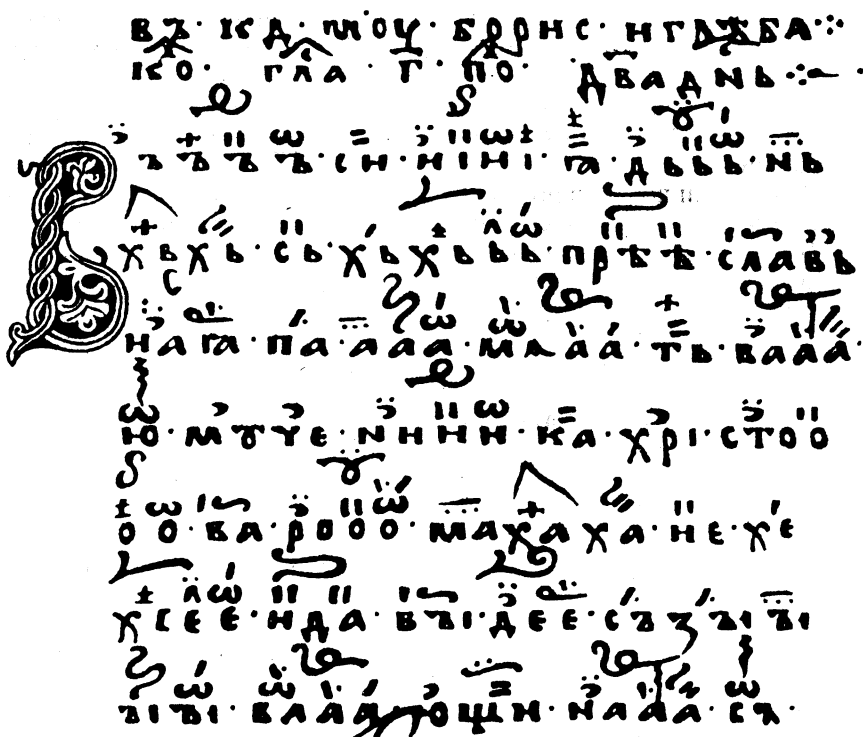 въ · кд · тоу · борис · и глѣба ⁘
ко · гла г · по · двадⸯнь ⁘
В ъ ъ ъ ъ · си · иіиі · га · дььь · нь
хьхь · сь · хьхььь · прѣѣ · славь
нага · па · ааа · млаа · ть · вааа ·
ю · мѹче · нини · ка · хрі · стоо
оо · ва · рооо · махаха · не · хе
хеее · нда · въі · дее · съзъіъі
ъіъі · вааа · ющи · нааа · сѧ ·